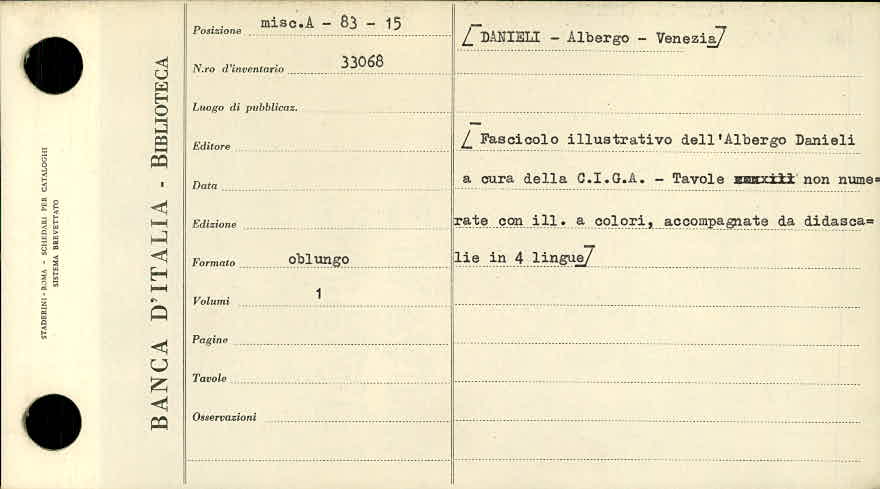 STADERINI - ROMA - SCHEDARI PER CATALOGHI
SISTEMA BREVETTATO
BANCA D'ITALIA - BIBLIOTECA
Posizione misc.A - 83 - 15
N.ro d'inventario 33068
Luogo di pubblicaz.
Editore
Data
Edizione
Formato oblungo
Volumi 1
Pagine
Tavole
Osservazioni
[DANIELI - Albergo - Venezia]
[Fascicolo illustrativo dell'Albergo Danieli
a cura della C.I.G.A. - Tavole non nume=
rate con ill. a colori, accompagnate da didasca=
lie in 4 lingue]